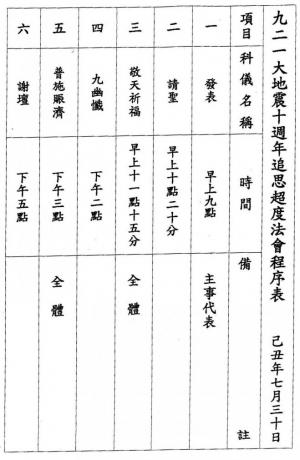 九二一大地震十週年追思超度法會程序表 己丑年七月三十日
項目 科儀名稱 時間 備註
一 發表 早上九點 主事代表
二 請聖 早上十點二十分
三 敬天祈福 早上十一點十五分 全體
四 九幽懺 下午二點
五 普施賑濟 下午三點 全體
六 謝壇 下午五點